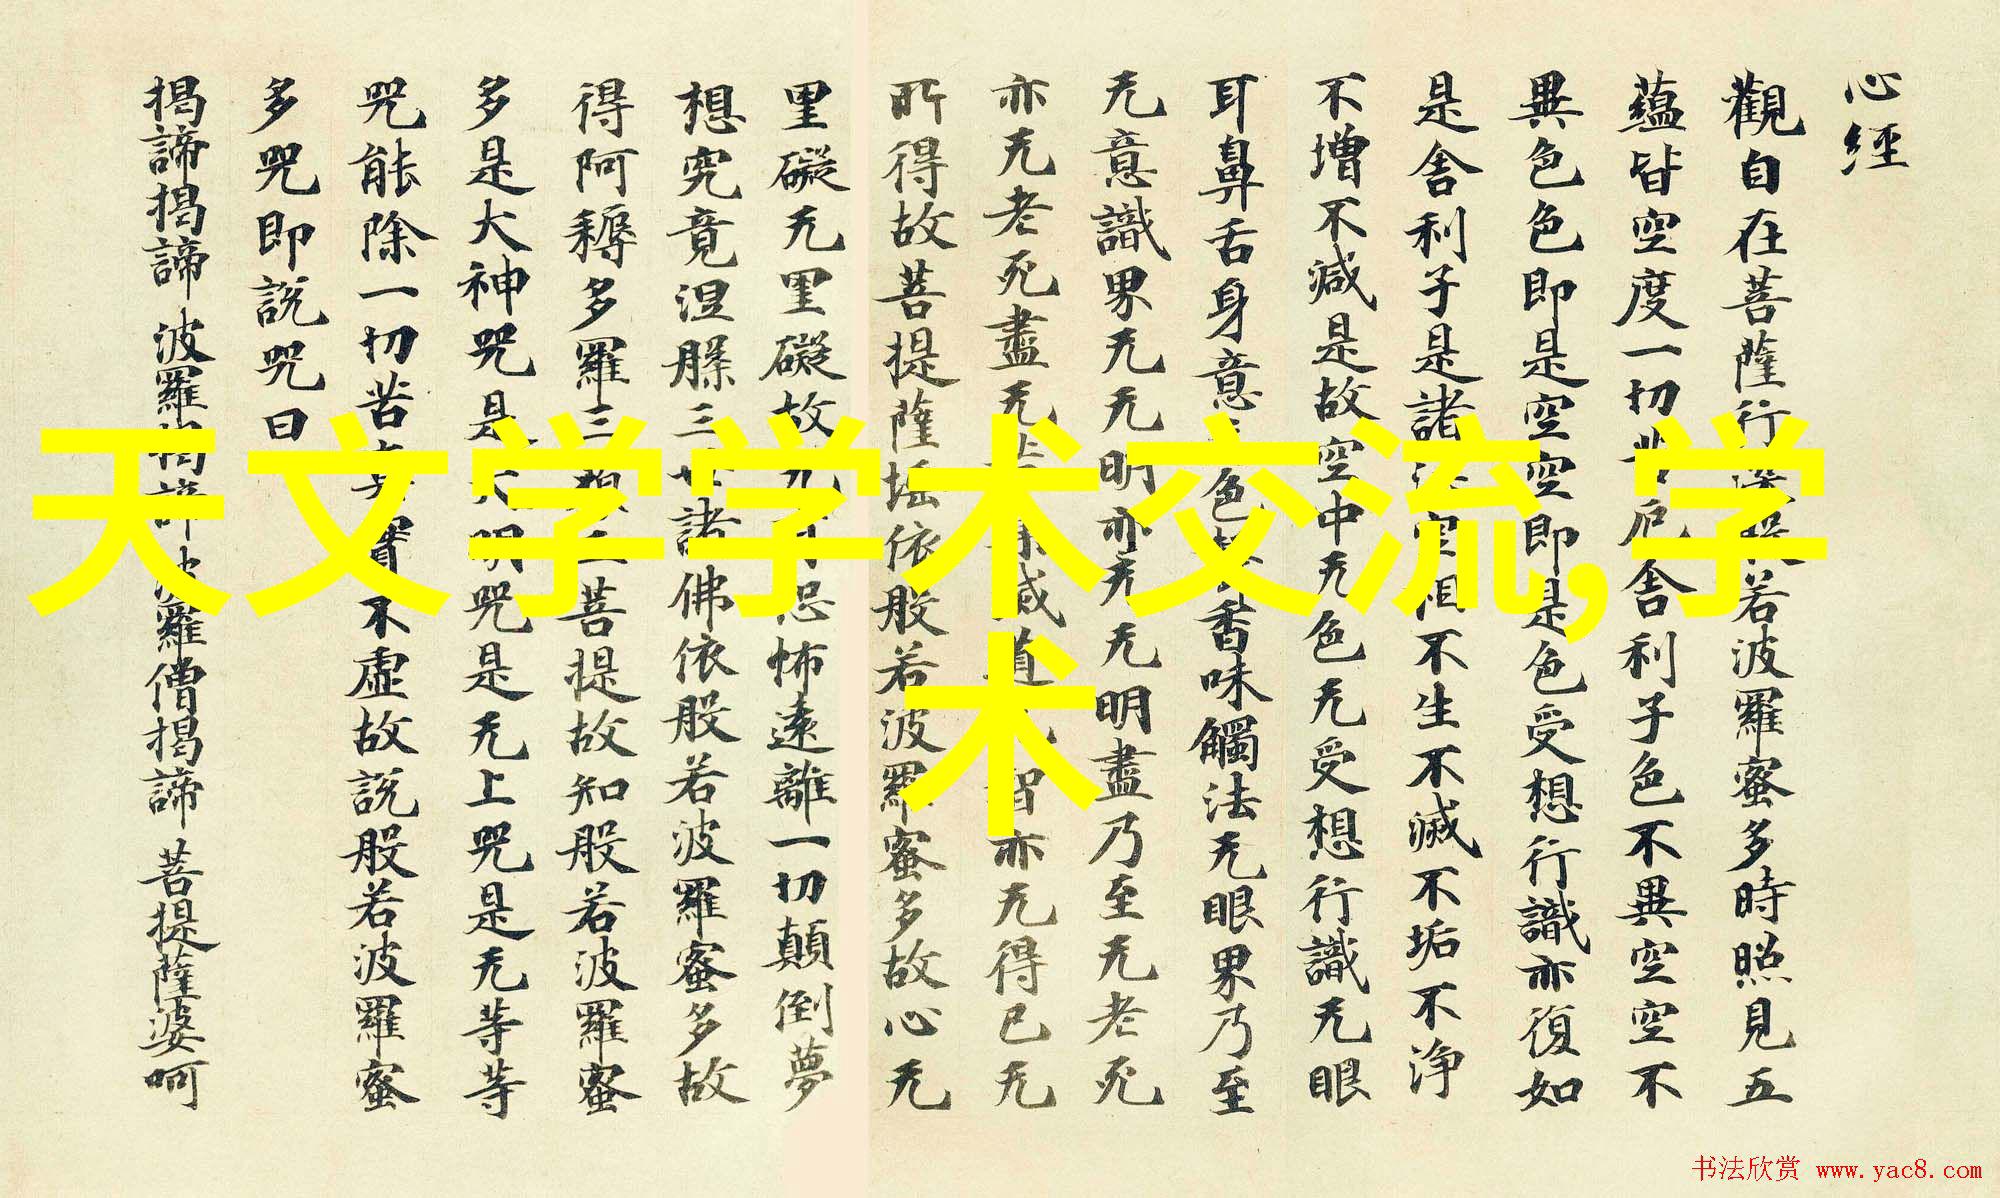 心經
觀自在菩薩行深般若波羅蜜多時照見五
蘊皆空度一切苦厄舍利子色不異空空不
異色色即是空空即是色受想行識亦復如
是舍利子是諸法空相不生不滅不垢不淨
不增不減是故空中无色无受想行識无眼
耳鼻舌身意色香味觸法无眼界乃至
无意識界无无明亦无无明盡乃至无老死
亦无老死盡无滅道智亦无得已无
所得故菩提薩埵依般若波羅蜜多故心无
罣礙无罣礙故恐怖遠離一切顛倒夢
想究竟涅槃三世諸佛依般若波羅蜜多故
得阿耨多羅三菩提故知般若波羅蜜
多是大神咒是大明咒是无上咒是无等等
咒能除一切苦實不虛故說般若波羅蜜
多咒即說咒曰
揭諦揭諦 波羅揭諦波羅僧揭諦 菩提薩婆呵
天文学学术交流,学
术
书法欣赏 www.yac8.com